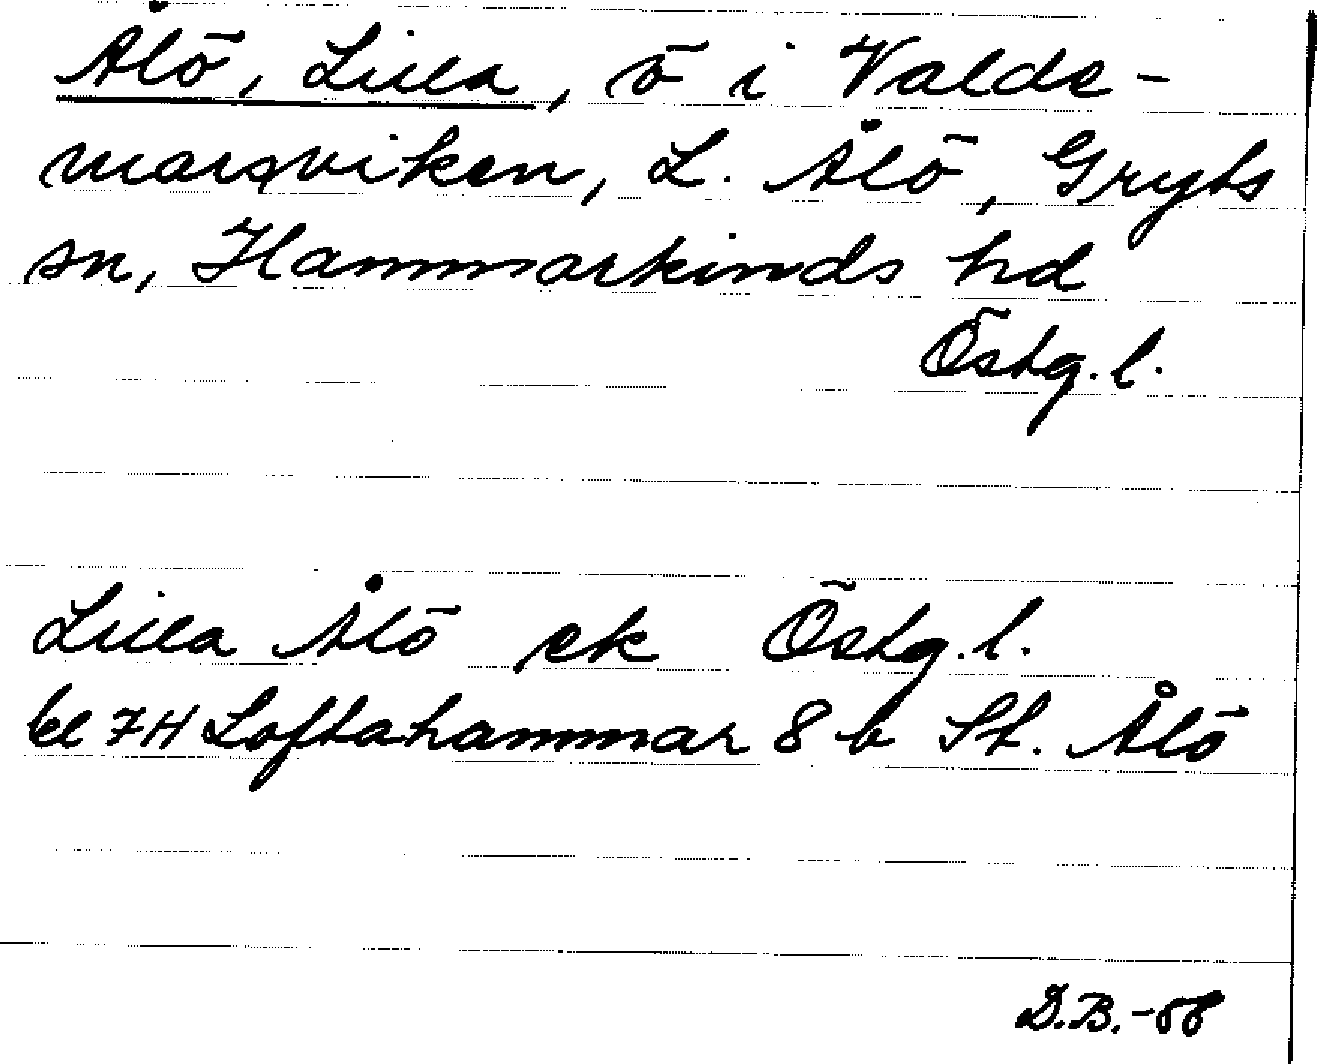 Ålö, Lilla, ö i Valde-
marsviken, L. Ålö, Gryts
sn, Hammarkinds hd
Östg. l.
Lilla Ålö ek Östg. l.
bl 7H Loftahammar 8 b St. Ålö
D.B.-68